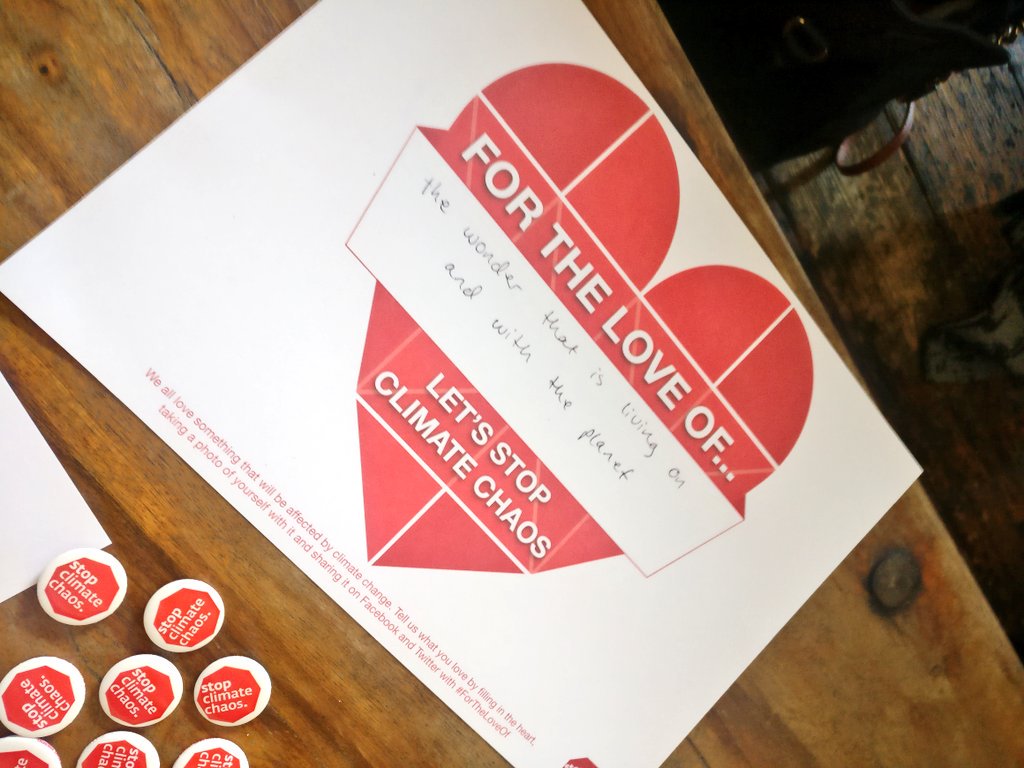 FOR THE LOVE OF...
the wonder that is living on
and with the planet
LET'S STOP
CLIMATE CHAOS
We all love something that will be affected by climate change. Tell us what you love by filling in the heart,
taking a photo of yourself with it and sharing it on Facebook and Twitter with #ForTheLoveOf.
stop
climate
chaos.
stop
climate
chaos.
stop
climate
chaos.
stop
climate
chaos.
stop
climate
chaos.
stop
climate
chaos.
stop
climate